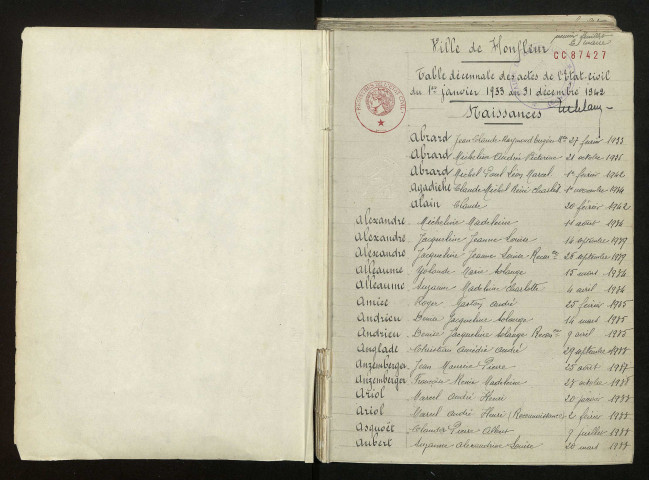 premier feuillet
Ville de Honfleur
CC87427
Table décennale des actes de l'Etat-civil
du 1er janvier 1933 au 31 décembre 1942
Naissances
Abrard Jean Claude Raymond Eugène 27 février 1933
Abrard Micheline Andrée 21 octobre 1935
Abrard Michel Paul Léon Marcel 1er février 1942
Agadiche Claude Michel Rémi Charles 1er novembre 1934
Alain Claude 20 février 1942
Alexandre Micheline Madeleine 11 août 1936
Alexandre Jacqueline Jeanne Louise 16 septembre 1939
Alexandre Jacqueline Jeanne Louise Recon ce 26 septembre 1939
Alleaume Yolande Marie Solange 15 mars 1934
Alleaume Suzanne Madeleine Charlotte 4 avril 1936
Amice Roger Gaston André 25 février 1935
Andrieu Denise Jacqueline Solange 14 mars 1935
Andrieu Denise Jacqueline Solange Recon ce 9 avril 1935
Anglade Christian Amédée André 29 septembre 1938
Anzemberger Jean Maurice Pierre 25 août 1937
Anzemberger Françoise Renée Madeleine 27 octobre 1938
Ariol Marcel André Henri 20 janvier 1933
Ariol Marcel André Henri (Reconnaissance) 2 février 1933
Asquoët Claude Pierre Albert 7 juillet 1933
Aubert Suzanne Alexandrine Louise 20 mars 1933